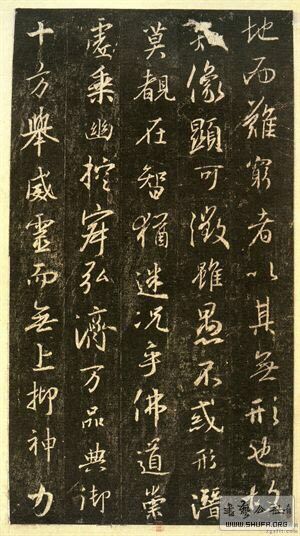 地而難窮者以其無形也故
知像顯可徵雖愚不惑形潛
莫覩在智猶迷況乎佛道崇
虛乘幽控寂弘濟万品典御
十方舉威靈而無上抑神力
WWW.SHUFA.ORG